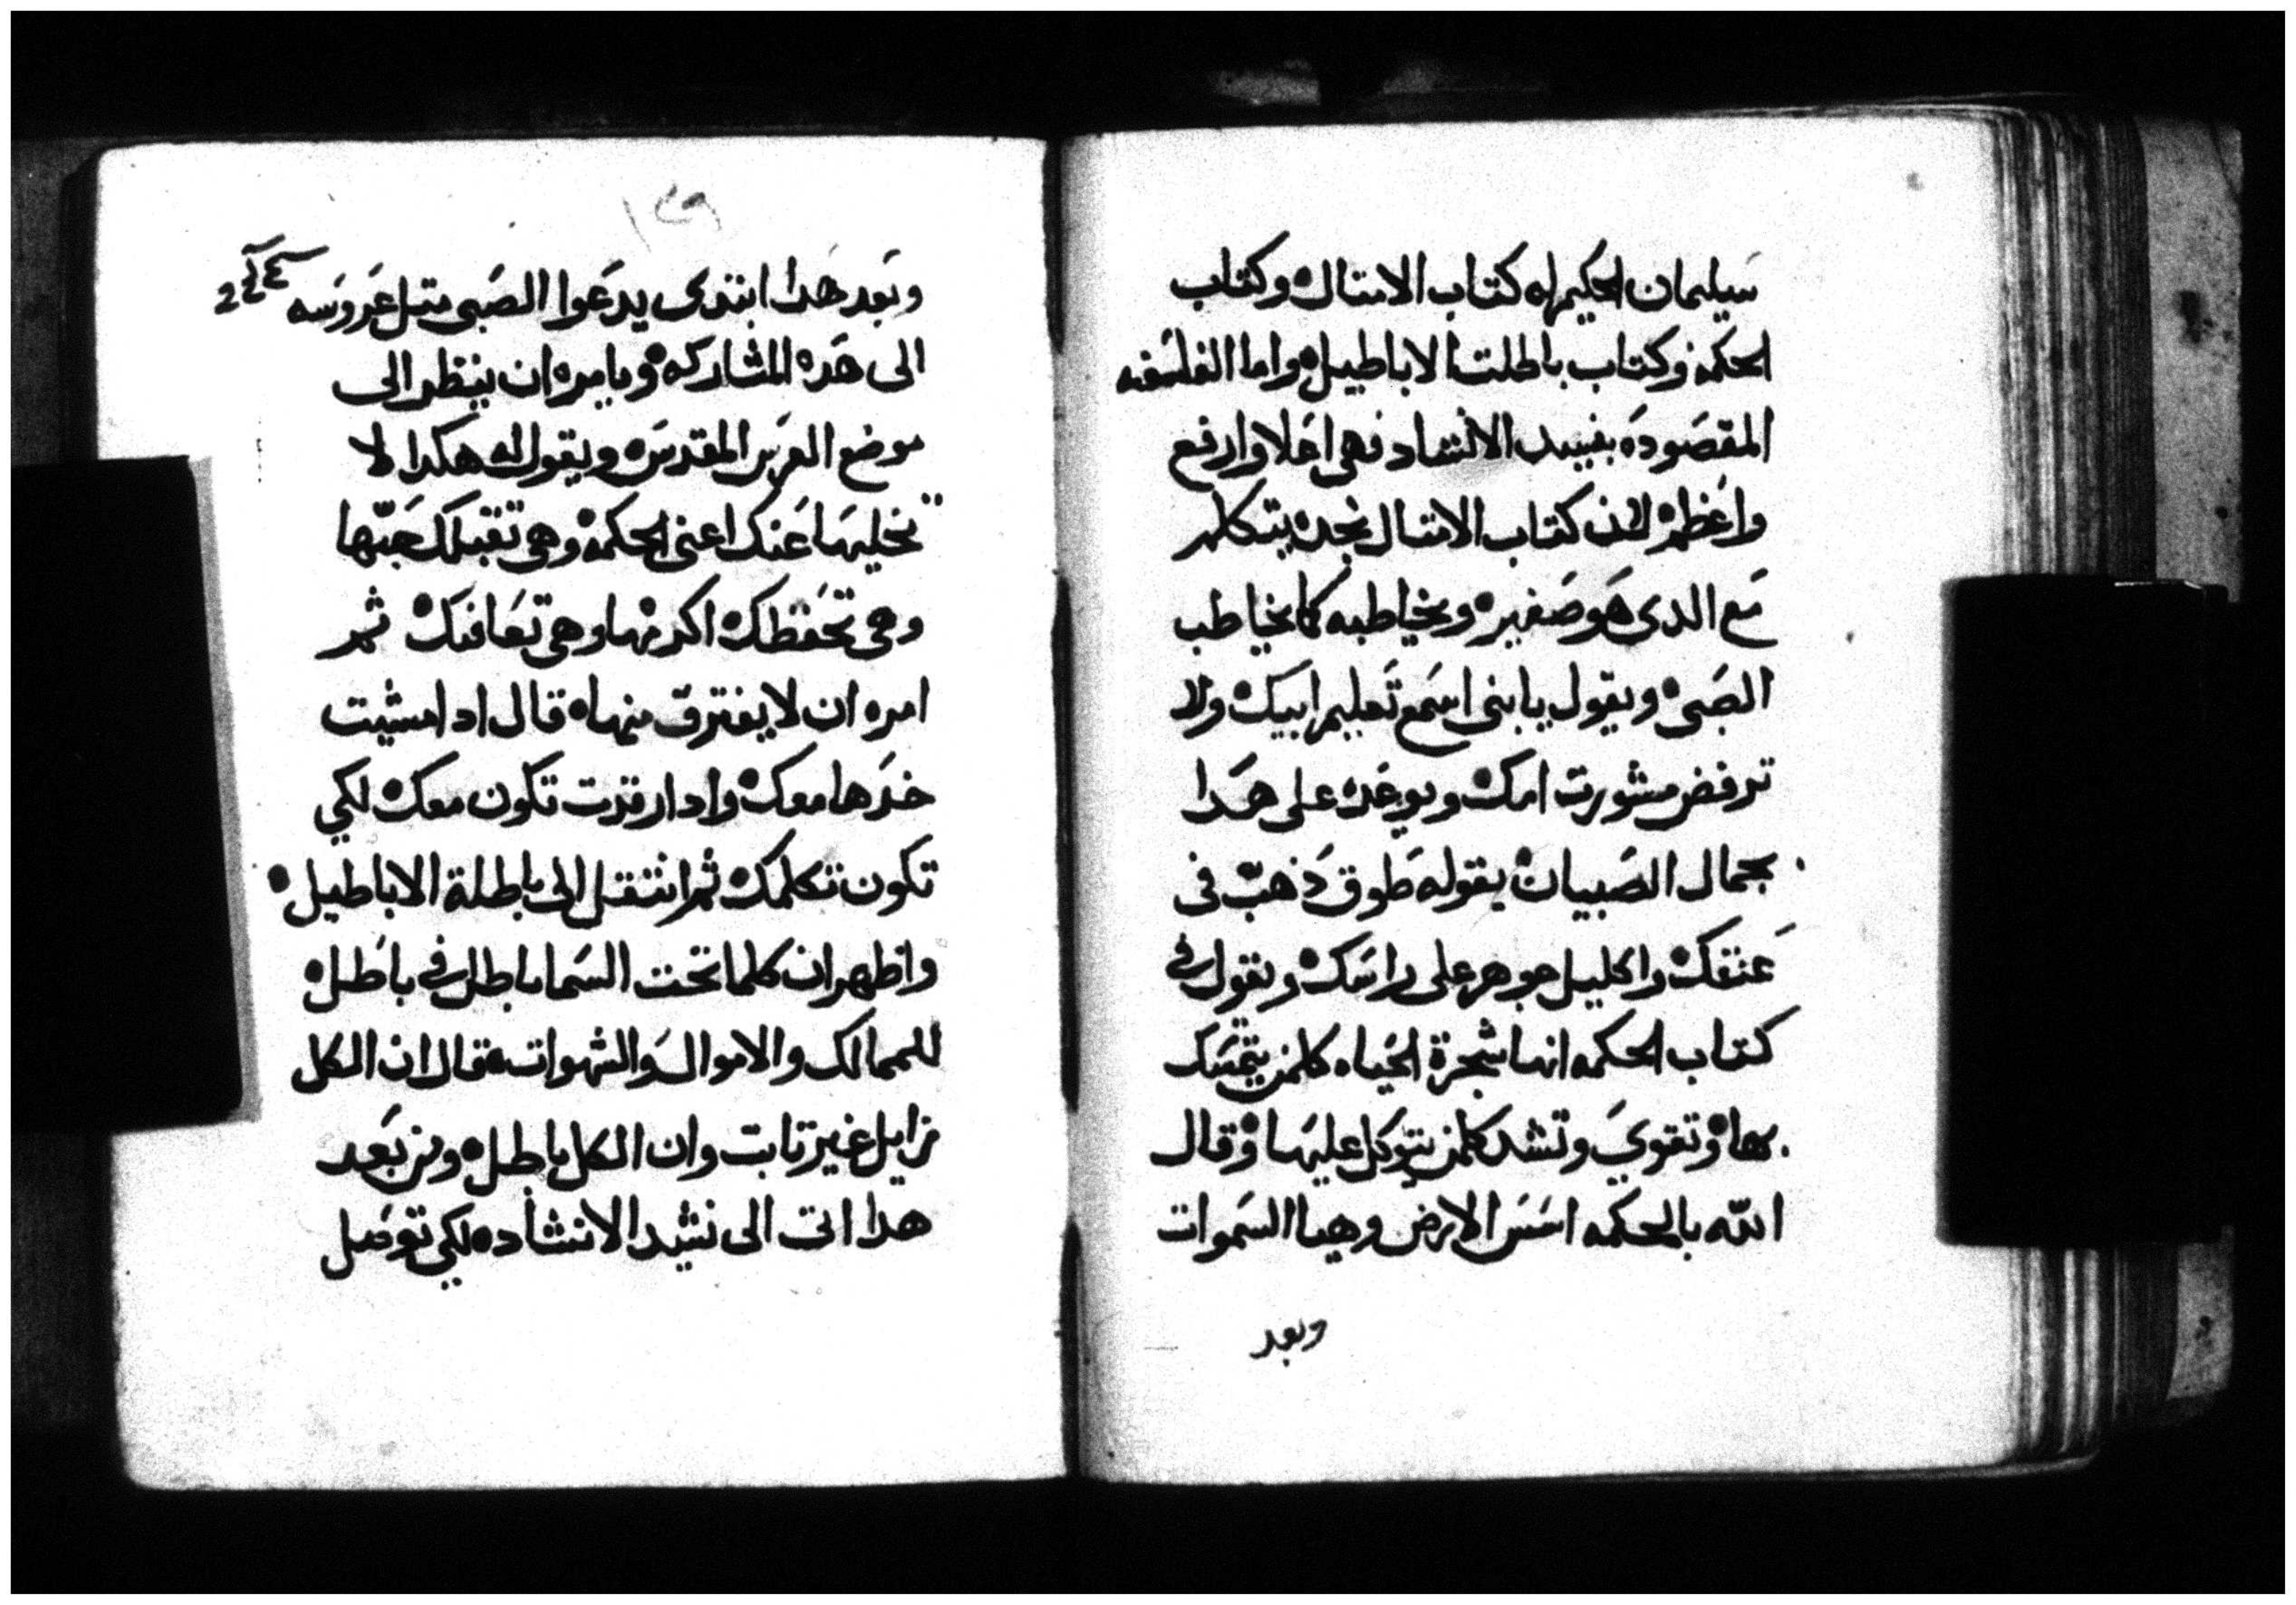 سيليمان الحكيم له كتاب الامتال وكتاب
الحكمه وكتاب باطلت الاباطيل واما الفلسفه
المقصوده بنبيد الانشاد فهى اعلا وارفع
واعظم لان كتاب الامتال نجده يتكلم
مع الدى هو صغير ويخاطبه كما يخاطب
الصبى ويقول يا بنى اسمع تعليم ابيك ولا
ترفض مشورت امك ويوعده على هدا
بجمال الصبيان يقوله طوق ذهب فى
عنقك واكليل جوهر على راسك ويقول فى
كتاب الحكمه انها شجرة الحياه كلمن يتمسك
بها وتقوي وتشد كلمن يتوكل عليها وقال
الله بالحكمه اسس الارض وهيا السموات
وبعد
١٣٩
وبعد هدا ابتدى يدعوا الصبى متل عروسه
الى هده المشاركه ويامره ان ينظر الى
موضع العرس المقدس ويقول له هكدا لا
تخليها عنك اعنى الحكمه وهى تقبلك حبها
وهى تحفظك اكرمها وهى تعانقك ثم
امره ان لا يفترق منها قال ادا مشيت
خدها معك وادا رقدت تكون معك لكي
تكون تكلمك ثم انتقل الى باطلة الاباطيل
واظهر ان كلما تحت السما باطل فى باطل
للممالك والاموال والشهوات قال ان الكل
زايل غير تابت وان الكل باطل ومن بعد
هدا اتى الى نشيد الانشاد لكي توصل